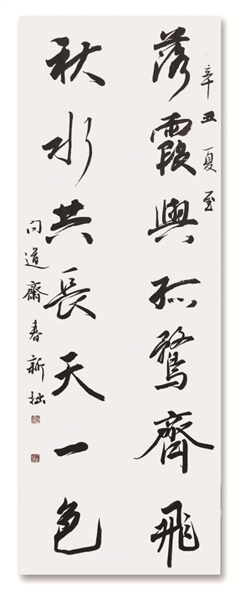 辛丑夏至
落霞與孤鶩齊飛
秋水共長天一色
问道齋春新拙